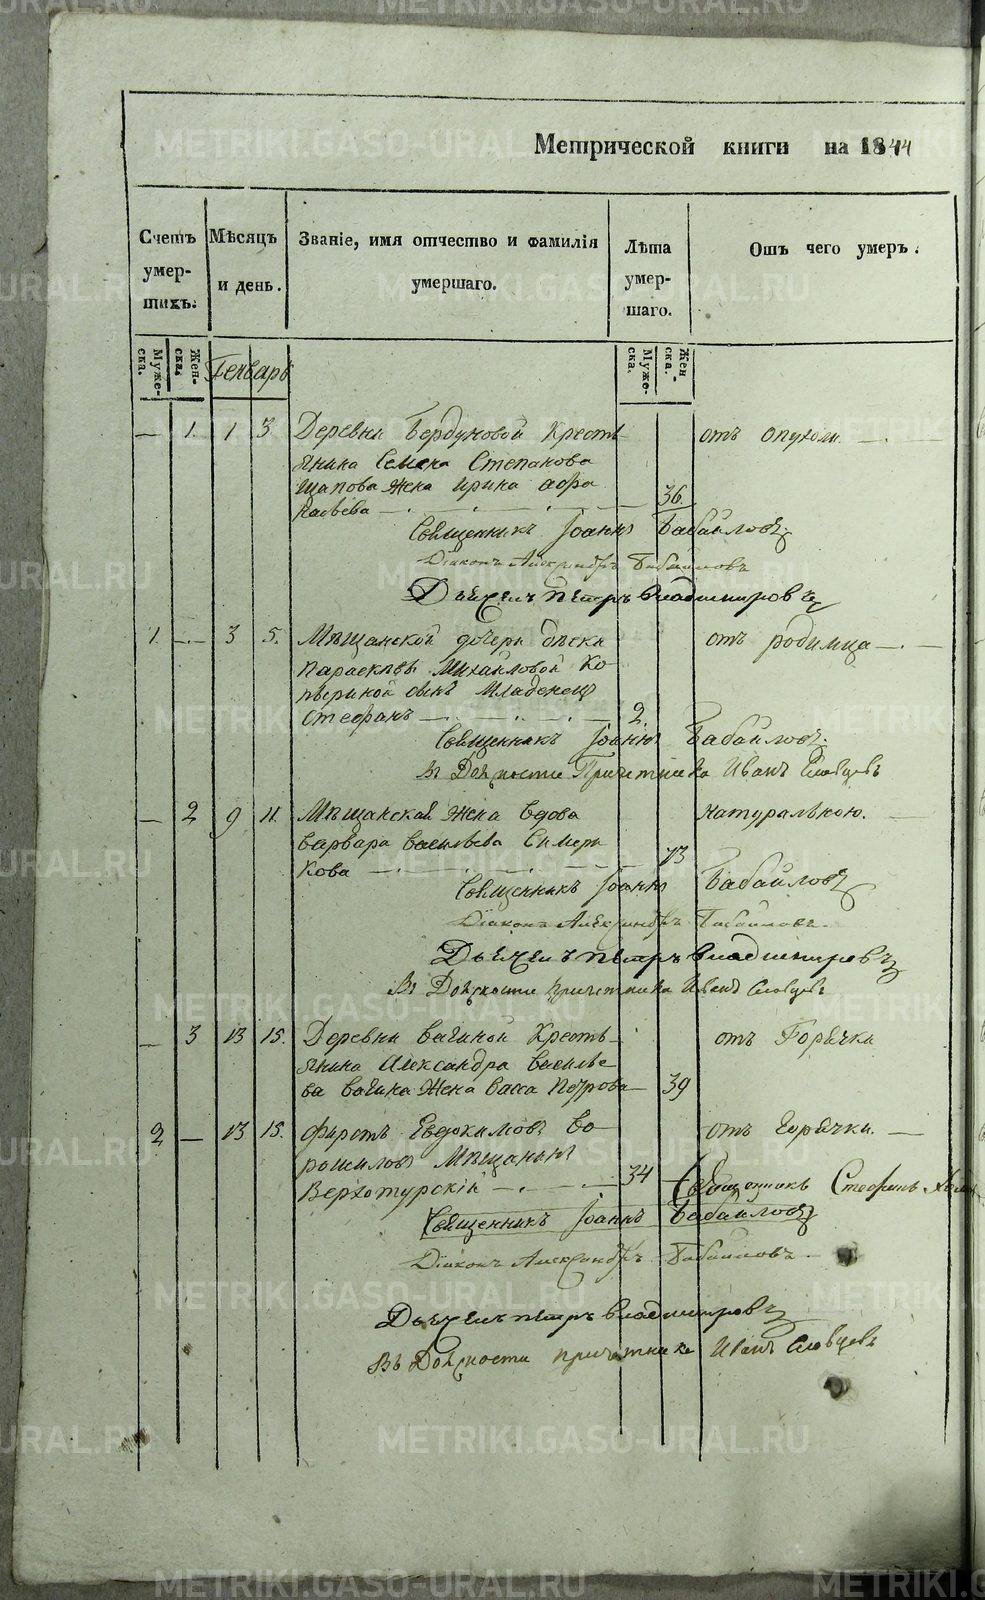 Метрической книги на 1844
Счетъ умер-шихъ.
Мѣсяцъ и день.
Званіе, имя отчество и фамилія умершаго.
Лѣта умер-шаго.
Отъ чего умеръ.
Муже-ска.
Жен-ска.
Генварь
Муже-ска.
Жен-ска.
— 1. 1 3 Деревни Бердуновой Кресть- отъ опухоли. —
янина Семена Степанова
Щапова жена Ирина
36.
Священникъ Іоаннъ Бабайловъ
Діаконъ Александръ Бабайловъ
Дьячекъ Петръ Владимировъ
1. — 3 5. Мѣщанской дочери дѣвки отъ родимца —
Параскевы Михайловой Ко-
сынъ Младенец
Стефанъ — 2.
Священникъ Іоаннъ Бабайловъ
Въ Должности Причетника Иванъ Словцовъ
— 2 9 11. Мѣщанская жена вдова натуральною. —
Варвара Васильева
кова — 73
Священникъ Іоаннъ Бабайловъ
Діаконъ Александръ Бабайловъ
Дьячекъ Петръ Владимировъ
Въ Должности причетника Иванъ Словцовъ
— 3 13 15. Деревни Вагиной Кресть- отъ Горячки
янина Александра Василье-
ва Вагина жена Васса Петрова — 39
2 — 13 15. Фирсъ Евдокимовъ Во- отъ Горячки. —
рошиловъ Мѣщанинъ
Верхотурскій — 34 Священникъ Стефанъ
Священникъ Іоаннъ Бабайловъ
Діаконъ Александръ Бабайловъ
Дьячекъ Петръ Владимировъ
Въ Должности причетника Иванъ Словцовъ
METRIKI.GASO-URAL.RU